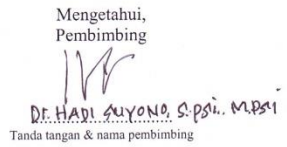 Mengetahui,
Pembimbing
Dr. HADI SUYONO, S.Psi., M.PSi
Tanda tangan & nama pembimbing